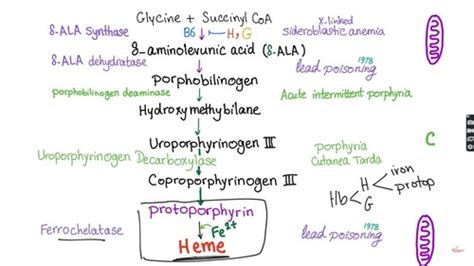 Glycine + Succinyl CoA
δ-ALA Synthase
B6
H, G
X-linked
sideroblastic anemia
δ-aminolevunic acid (δ-ALA)
δ-ALA dehydratase
lead poisoning 1978
Porphobilinogen
porphobilinogen deaminase
Acute intermittent porphyria
Hydroxymethybilane
Uroporphyrinogen III
Uroporphyrinogen Decarboxylase
porphyria
Cutanea Tarda
C
Coproporphyrinogen III
Hb
H
G
iron
protop
protoporphyrin
Ferrochelatase
Fe2+
Heme
lead poisoning 1978